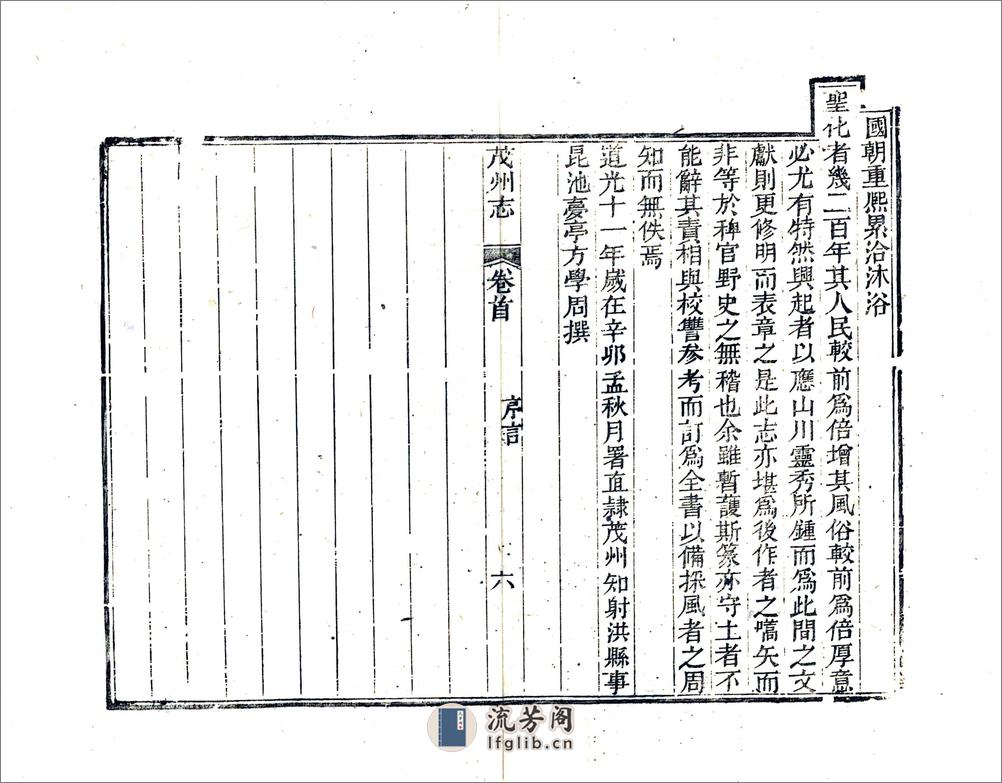 國朝重熙累洽沐浴
聖化者幾二百年其人民較前爲倍增其風俗較前爲倍厚意
必尤有特然興起者以應山川靈秀所鍾而爲此間之文
獻則更修明而表章之是此志亦堪爲後作者之嚆矢而
非等於稗官野史之無稽也余雖暫護斯篆亦守土者不
能辭其責相與校讐參考而訂爲全書以備採風者之周
知而無佚焉
道光十一年歲在辛卯孟秋月署直隷茂州知射洪縣事
昆池憂亭方學周撰
茂州志
卷首
序言
六
流芳阁
lfglib.cn